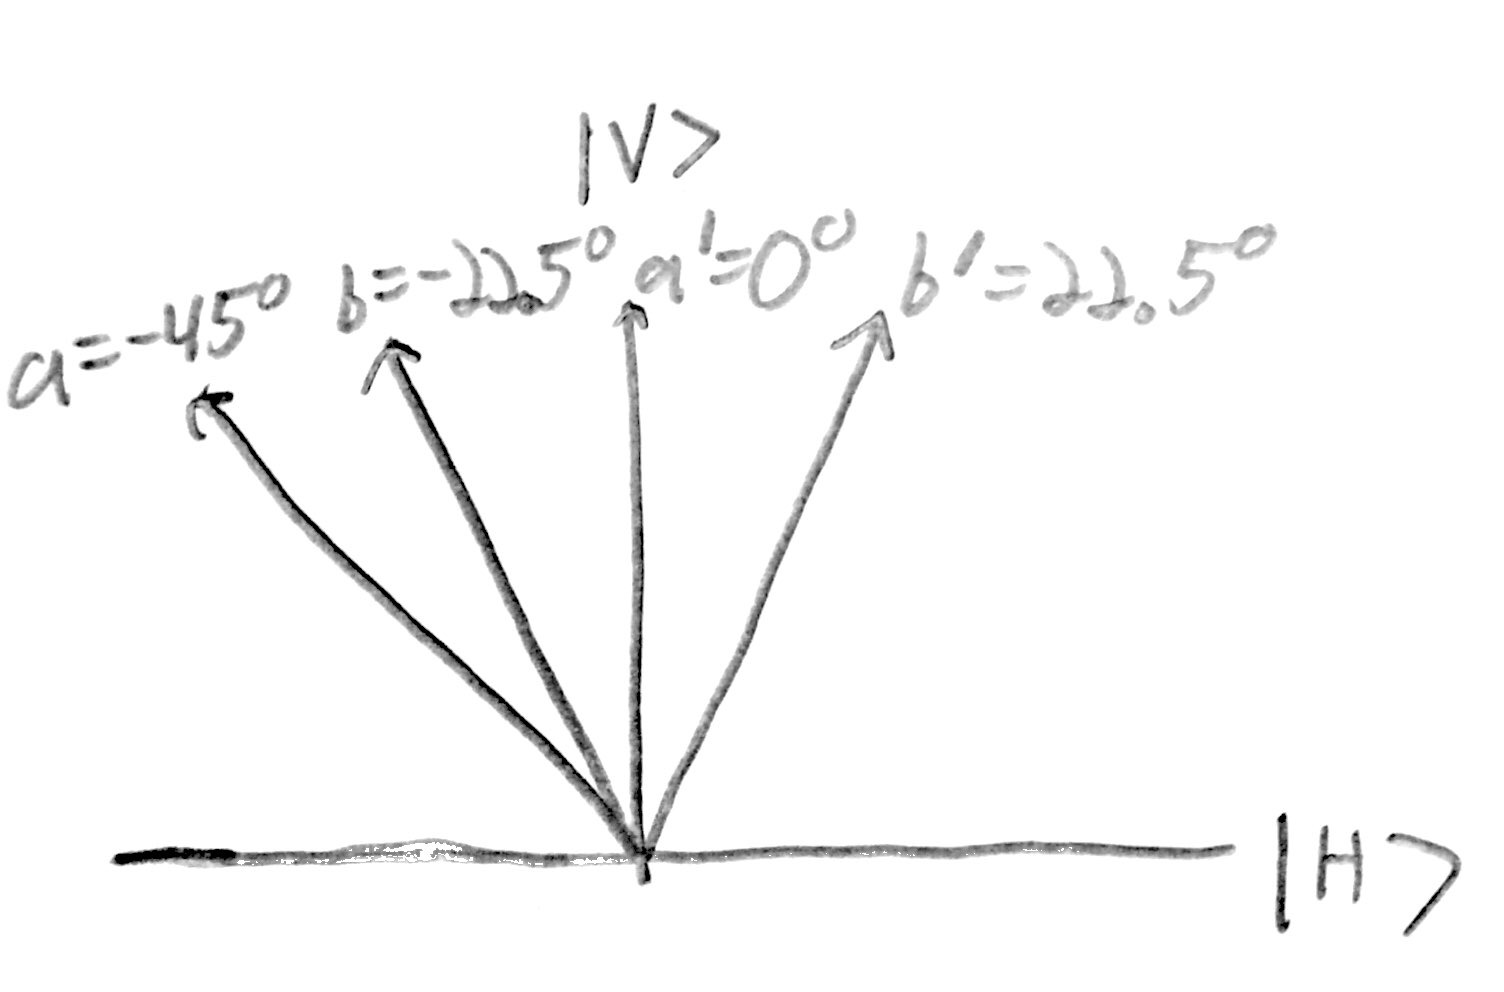 |V>
a=-45° b=-22.5° a'=0° b'=22.5°
|H>